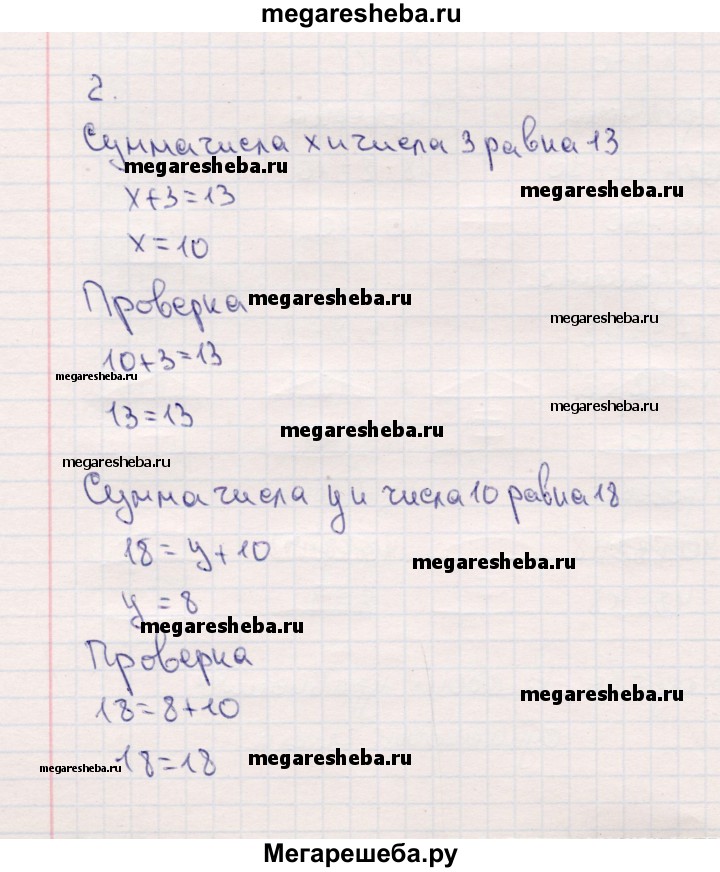 megaresheba.ru
2.
Сумма числа х и числа 3 равна 13
megaresheba.ru
megaresheba.ru
х+3=13
х=10
Проверка
megaresheba.ru
megaresheba.ru
10+3=13
megaresheba.ru
13=13
megaresheba.ru
megaresheba.ru
megaresheba.ru
Сумма числа у и числа 10 равна 18
18=у+10
megaresheba.ru
у=8
megaresheba.ru
Проверка
megaresheba.ru
18=8+10
18=18
megaresheba.ru
megaresheba.ru
Мегарешеба.ру